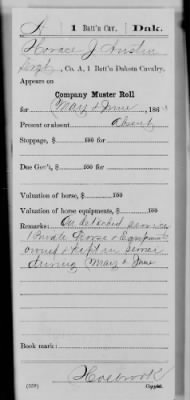 A 1 Batt'n Cav. Dak.
Horace J. Austin
Sergt., Co. A, 1 Batt'n Dakota Cavalry.
Appears on
Company Muster Roll
for May & June, 186
Present or absent Absent
Stoppage, $ 100 for
Due Gov't, $ 100 for
Valuation of horse, $ 100
Valuation of horse equipments, $ 100
Remarks: On detached service
1 Private Horse & Equipments
owned & kept in service
during May & June
Book mark:
Holbrook
(358) Copyist.